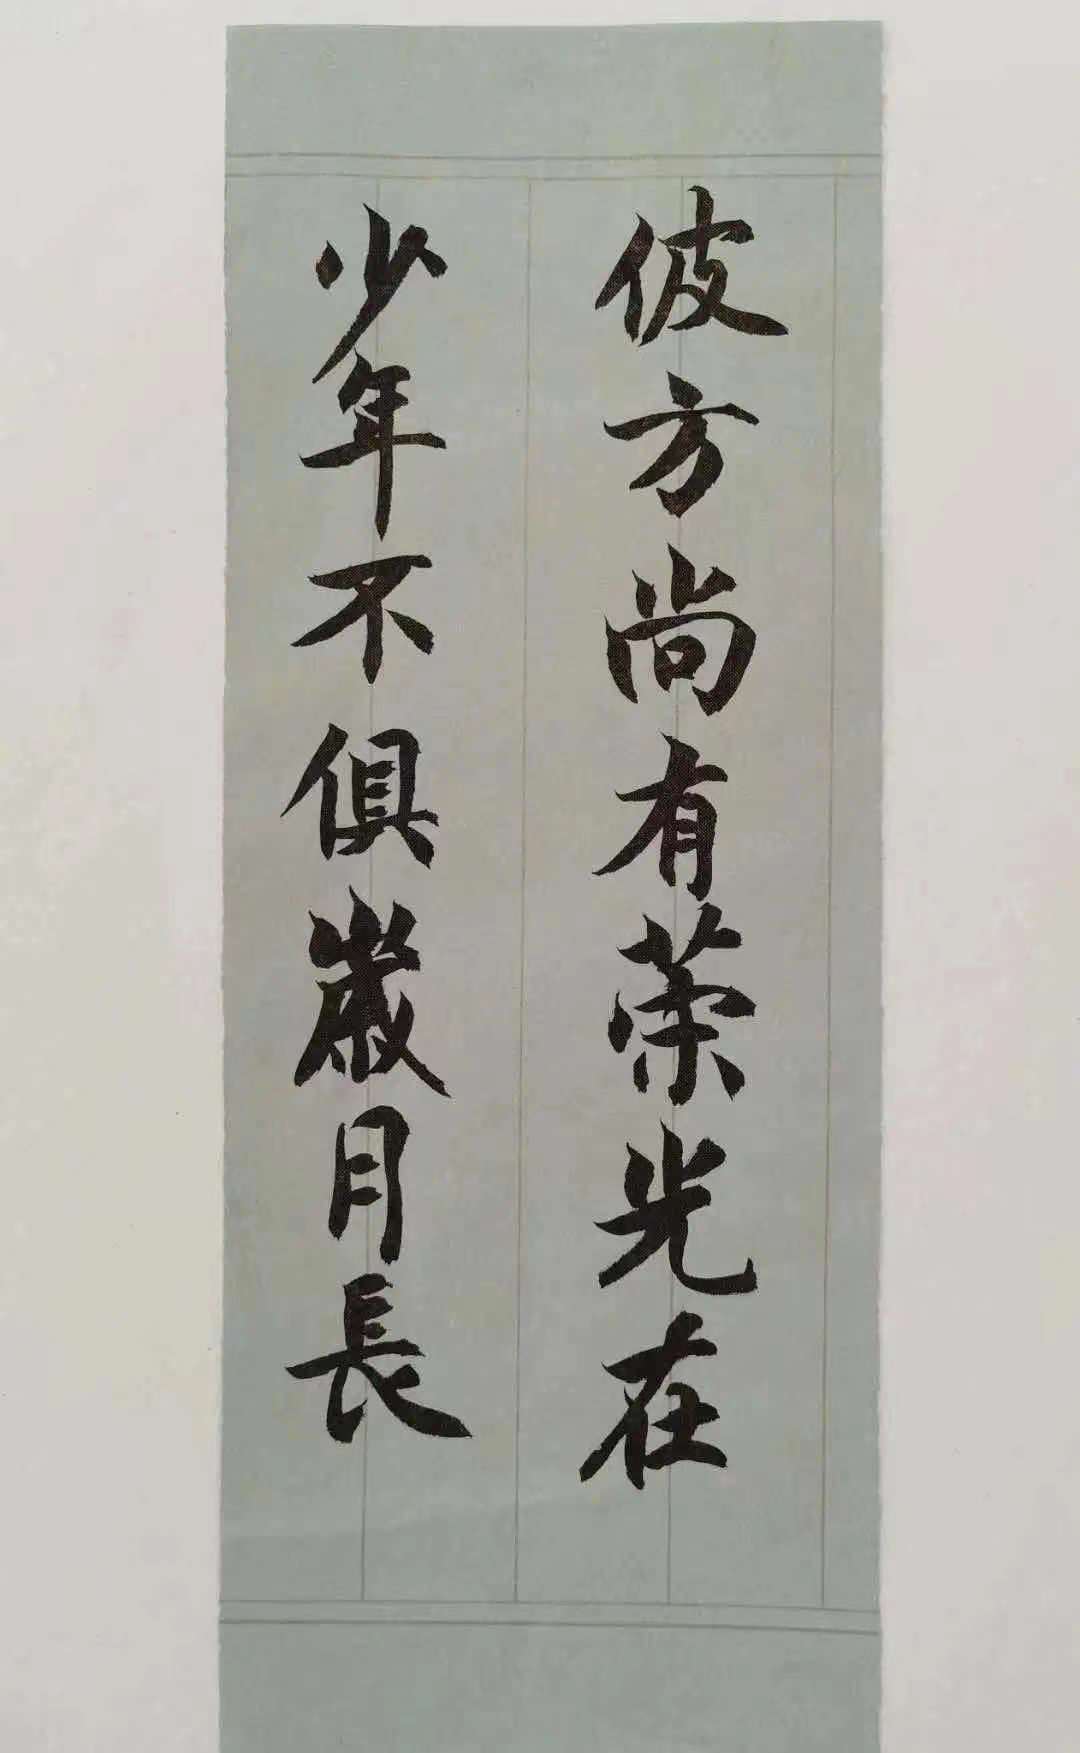 彼方尚有荣光在
少年不俱歲月長